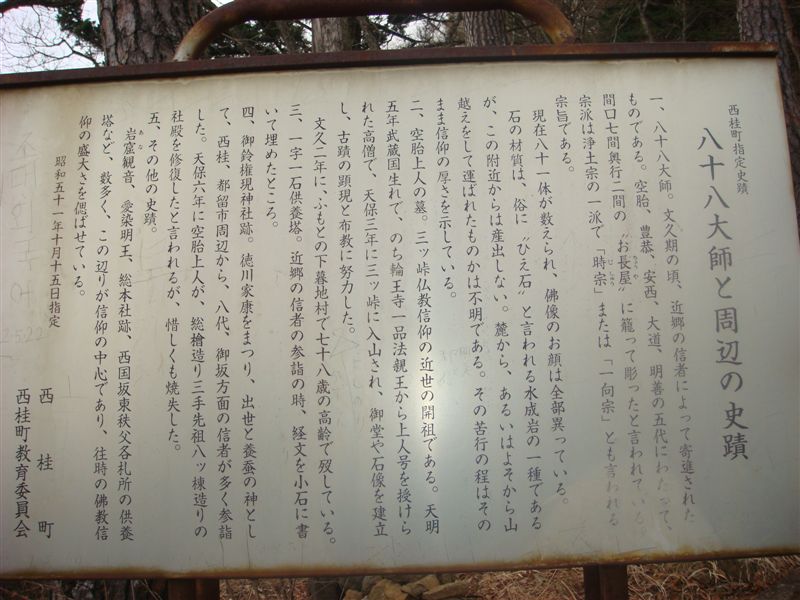 西桂町指定史蹟
八十八大師と周辺の史蹟
一、八十八大師。文久期の頃、近郷の信者によって寄進された
ものである。空胎、豊恭、安西、大道、明善の五代にわたって、
間口七間奥行二間の〝お長屋〟に籠って彫ったと言われている。
ちょうや
宗派は浄土宗の一派で「時宗」または「一向宗」とも言われる
じしゅう
宗旨である。
現在八十一体が数えられ、佛像のお顔は全部異っている。
石の材質は、俗に〝ひえ石〟と言われる水成岩の一種である
が、この附近からは産出しない。麓から、あるいはよそから山
越えをして運ばれたものかは不明である。その苦行の程はその
まま信仰の厚さを示している。
二、空胎上人の墓。三ッ峠仏教信仰の近世の開祖である。天明
五年武蔵国生れで、のち輪王寺一品法親王から上人号を授けら
れた高僧で、天保三年に三ッ峠に入山され、御堂や石像を建立
し、古蹟の顕現と布教に努力した。
文久二年に、ふもとの下暮地村で七十八歳の高齢で歿している。
三、一字一石供養塔。近郷の信者の参詣の時、経文を小石に書
いて埋めたところ。
四、御鈴権現神社跡。徳川家康をまつり、出世と養蚕の神とし
て、西桂、都留市周辺から、八代、御坂方面の信者が多く参詣
した。天保六年に空胎上人が、総檜造り三手先祖八ッ棟造りの
社殿を修復したと言われるが、惜しくも焼失した。
五、その他の史蹟。
岩窟観音、愛染明王、総本社跡、西国坂東秩父各札所の供養
あな
塔など、数多く、この辺りが信仰の中心であり、往時の佛教信
仰の盛大さを偲ばせている。
昭和五十一年十月十五日指定
西桂町
西桂町教育委員会